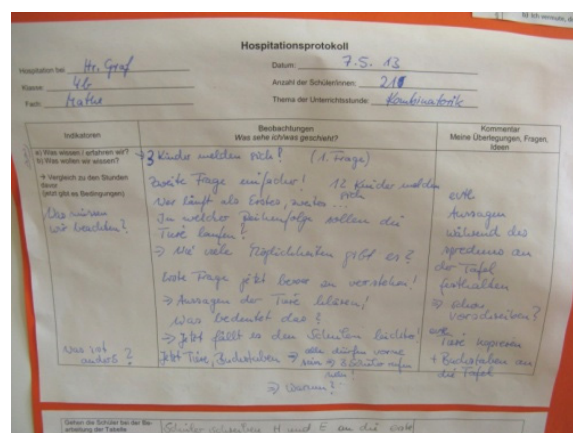 Hospitationsprotokoll
Hospitation bei: Hr. Graf
Datum: 7.5. 13
Klasse: 4b
Anzahl der Schüler/innen: 21
Fach: Mathe
Thema der Unterrichtsstunde: Kombinatorik
Indikatoren
Beobachtungen
Was sehe ich/was geschieht?
Kommentar
Meine Überlegungen, Fragen, Ideen
a) Was wissen / erfahren wir?
b) Was wollen wir wissen?
→ Vergleich zu den Stunden
davor
(jetzt gibt es Bedingungen)
Was müssen
wir beachten?
Was ist
anders?
→ 3 Kinder melden sich! (1. Frage)
Zweite Frage einfacher! 12 Kinder melden
sich
Wer läuft als Erstes, zweites
In welcher Reihenfolge sollen die
Tiere laufen?
⇒ Wie viele Möglichkeiten gibt es?
Frage jetzt besser zu verstehen!
⇒ Aussagen der Tiere klären!
Was bedeutet das?
⇒ Jetzt fällt es den Schülern leichter!
Jetzt Tiere, Buchstaben ⇒ alle dürfen vorne
⇒ Warum?
evtl.
Aussagen
während des
an
der Tafel
festhalten
⇒ schon
vorschreiben?
evtl.
Tiere kopieren
+ Buchstaben an
die Tafel
Gehen die Schüler bei der Be-
arbeitung der Tabelle
Schüler schreiben H und E an die